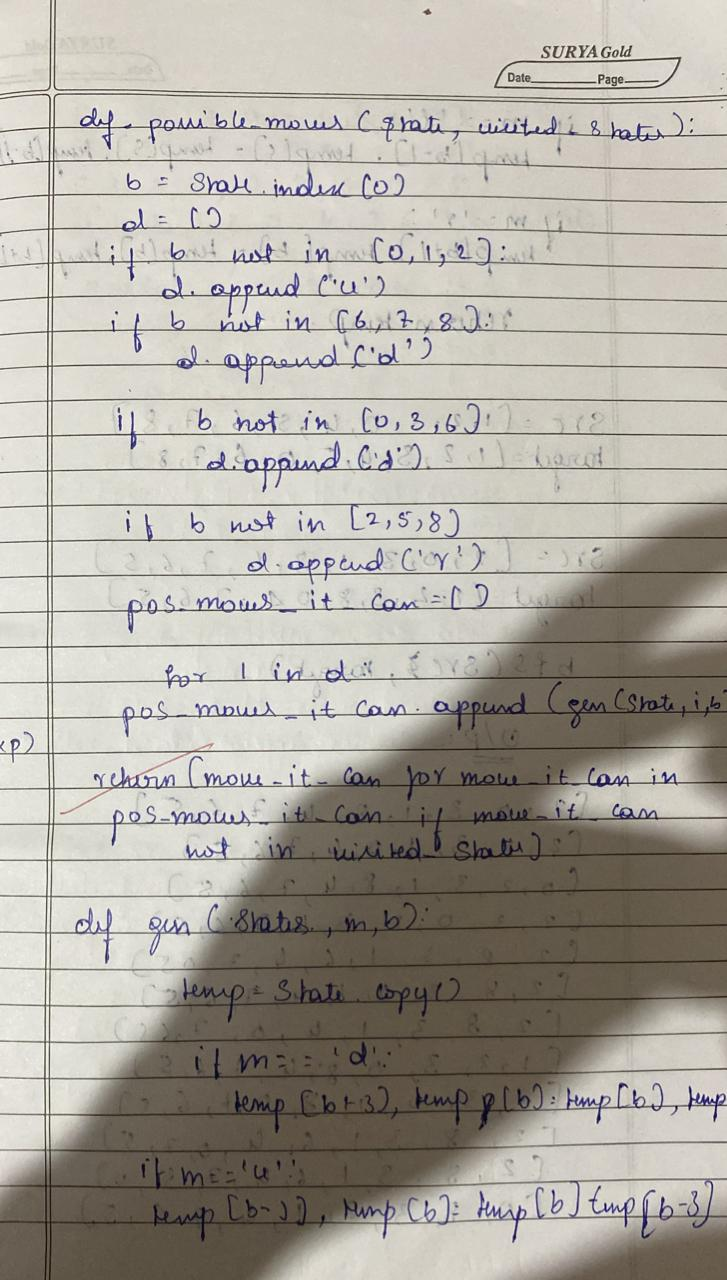 SURYA Gold
Date Page
def possible_moves (state, visited_states):
b = state.index(0)
d = []
if b not in [0,1,2]:
d.append('u')
if b not in [6,7,8]:
d.append('d')
if b not in [0,3,6]:
d.append('d')
if b not in [2,5,8]
d.append('r')
pos_moves_it can = []
for i in d:
pos_moves_it can.append(gen(state, i, b
return [move_it_can for move_it_can in
pos_moves_it_can if move_it_can
not in visited_states]
def gen (states, m, b):
temp = state.copy()
if m == 'd':
temp[b+3], temp[b] = temp[b], temp
if m == 'u':
temp[b-3], temp[b] = temp[b] temp[b-3]